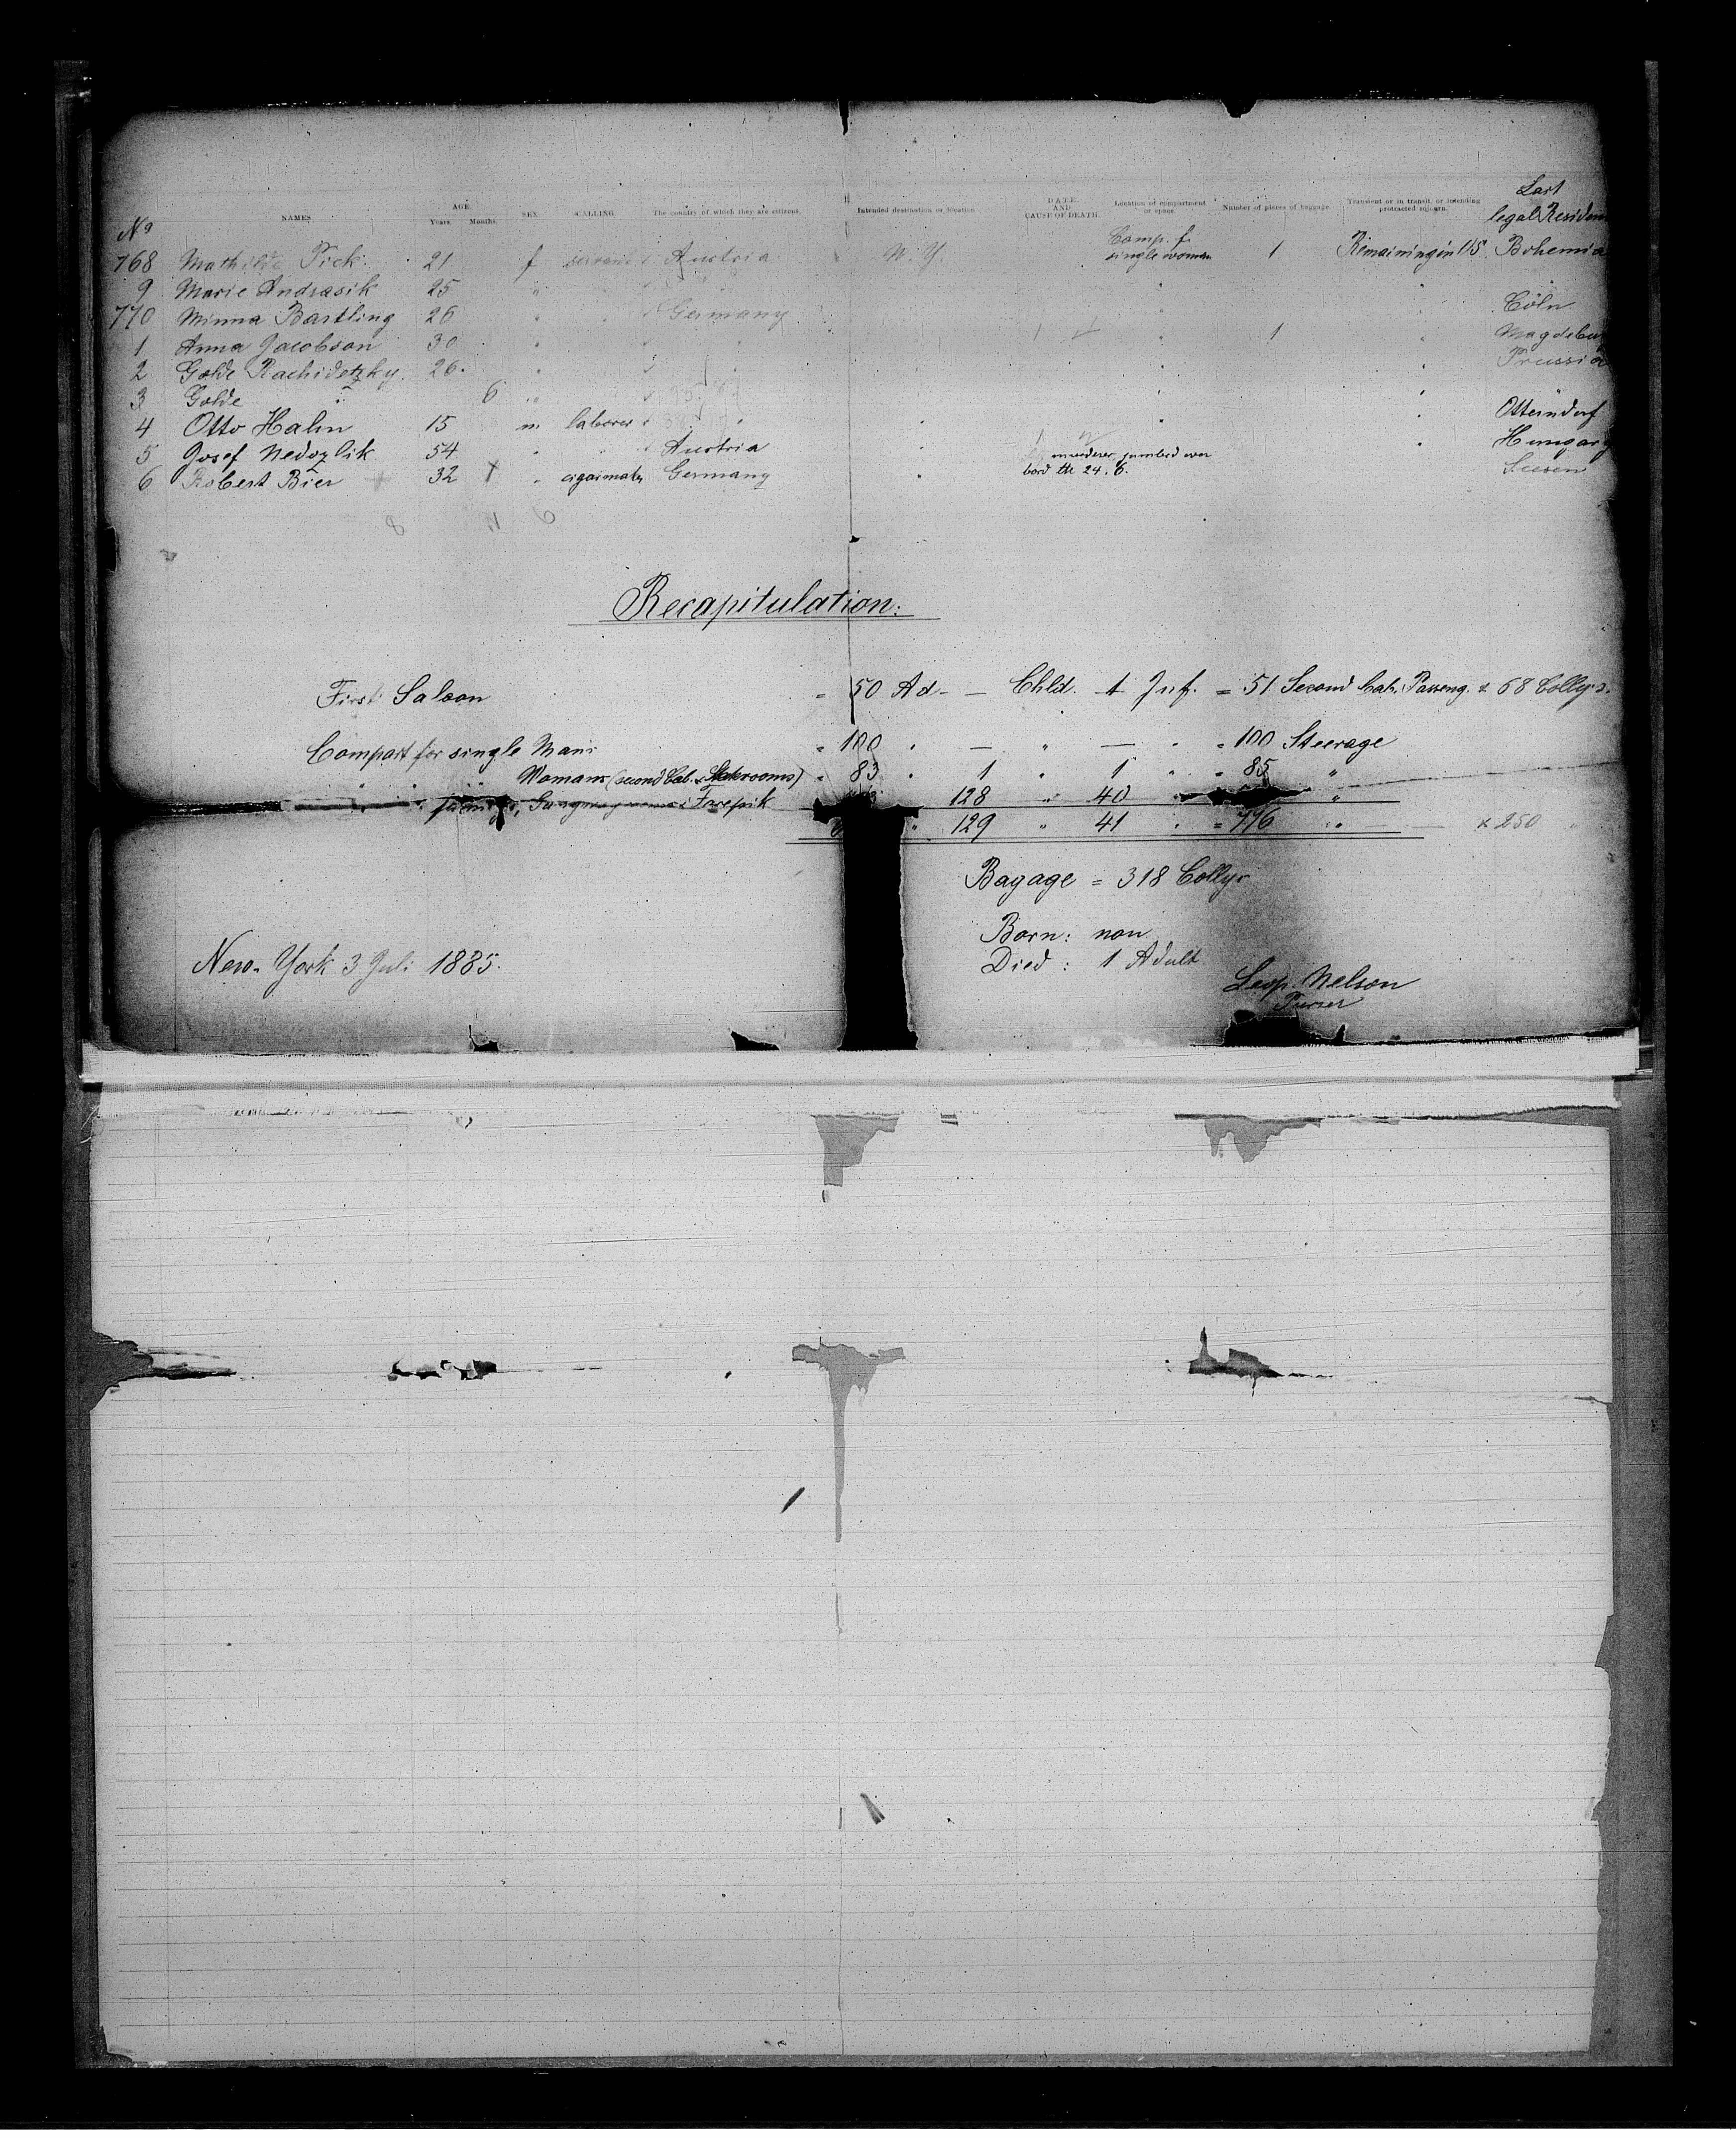 Last
legal Residen
No NAMES. AGE. Years. Months. SEX. CALLING. The country of which they are citizens. Intended destination or location. DATE AND CAUSE OF DEATH. Location of compartment or space. Number of pieces of baggage. Transient or in transit, or intending protracted sojourn.
768 Mathilde Fick 21 f servant Austria N. Y. Comp. f. single woman 1 Remaining in US Bohemia
9 Marie Andrasik 25 "
770 Minna Bartling 26 " Germany Cöln
1 Anna Jacobson 30 " 1 Magdebu
2 Golde Rachidetzky 26 " Prussia
3 Golde " 6 "
4 Otto Hahn 15 m laborer " Otterndorf
5 Josef Nedozlik 54 " " Austria Hungary
6 Robert Bier 32 " cigarmaker Germany murderer jumbed over bord the 24. 6. Seesen
Recapitulation:
First Saloon = 50 Ad. — Chld. 1 Inf. = 51 Second Cab. Passeng. & 68 Collys.
Compart for single Mans = 100 " — " — " = 100 Steerage
" " " Womans (second Cab. Staterooms) " 83 " 1 " 1 " " 85 "
" " " 128 " 40 " "
" 129 " 41 " = 776 " & 250 "
Bagage = 318 Collys
Born: non
New-York 3 Juli 1885.
Died: 1 Adult
Leop. Nelson
Purser